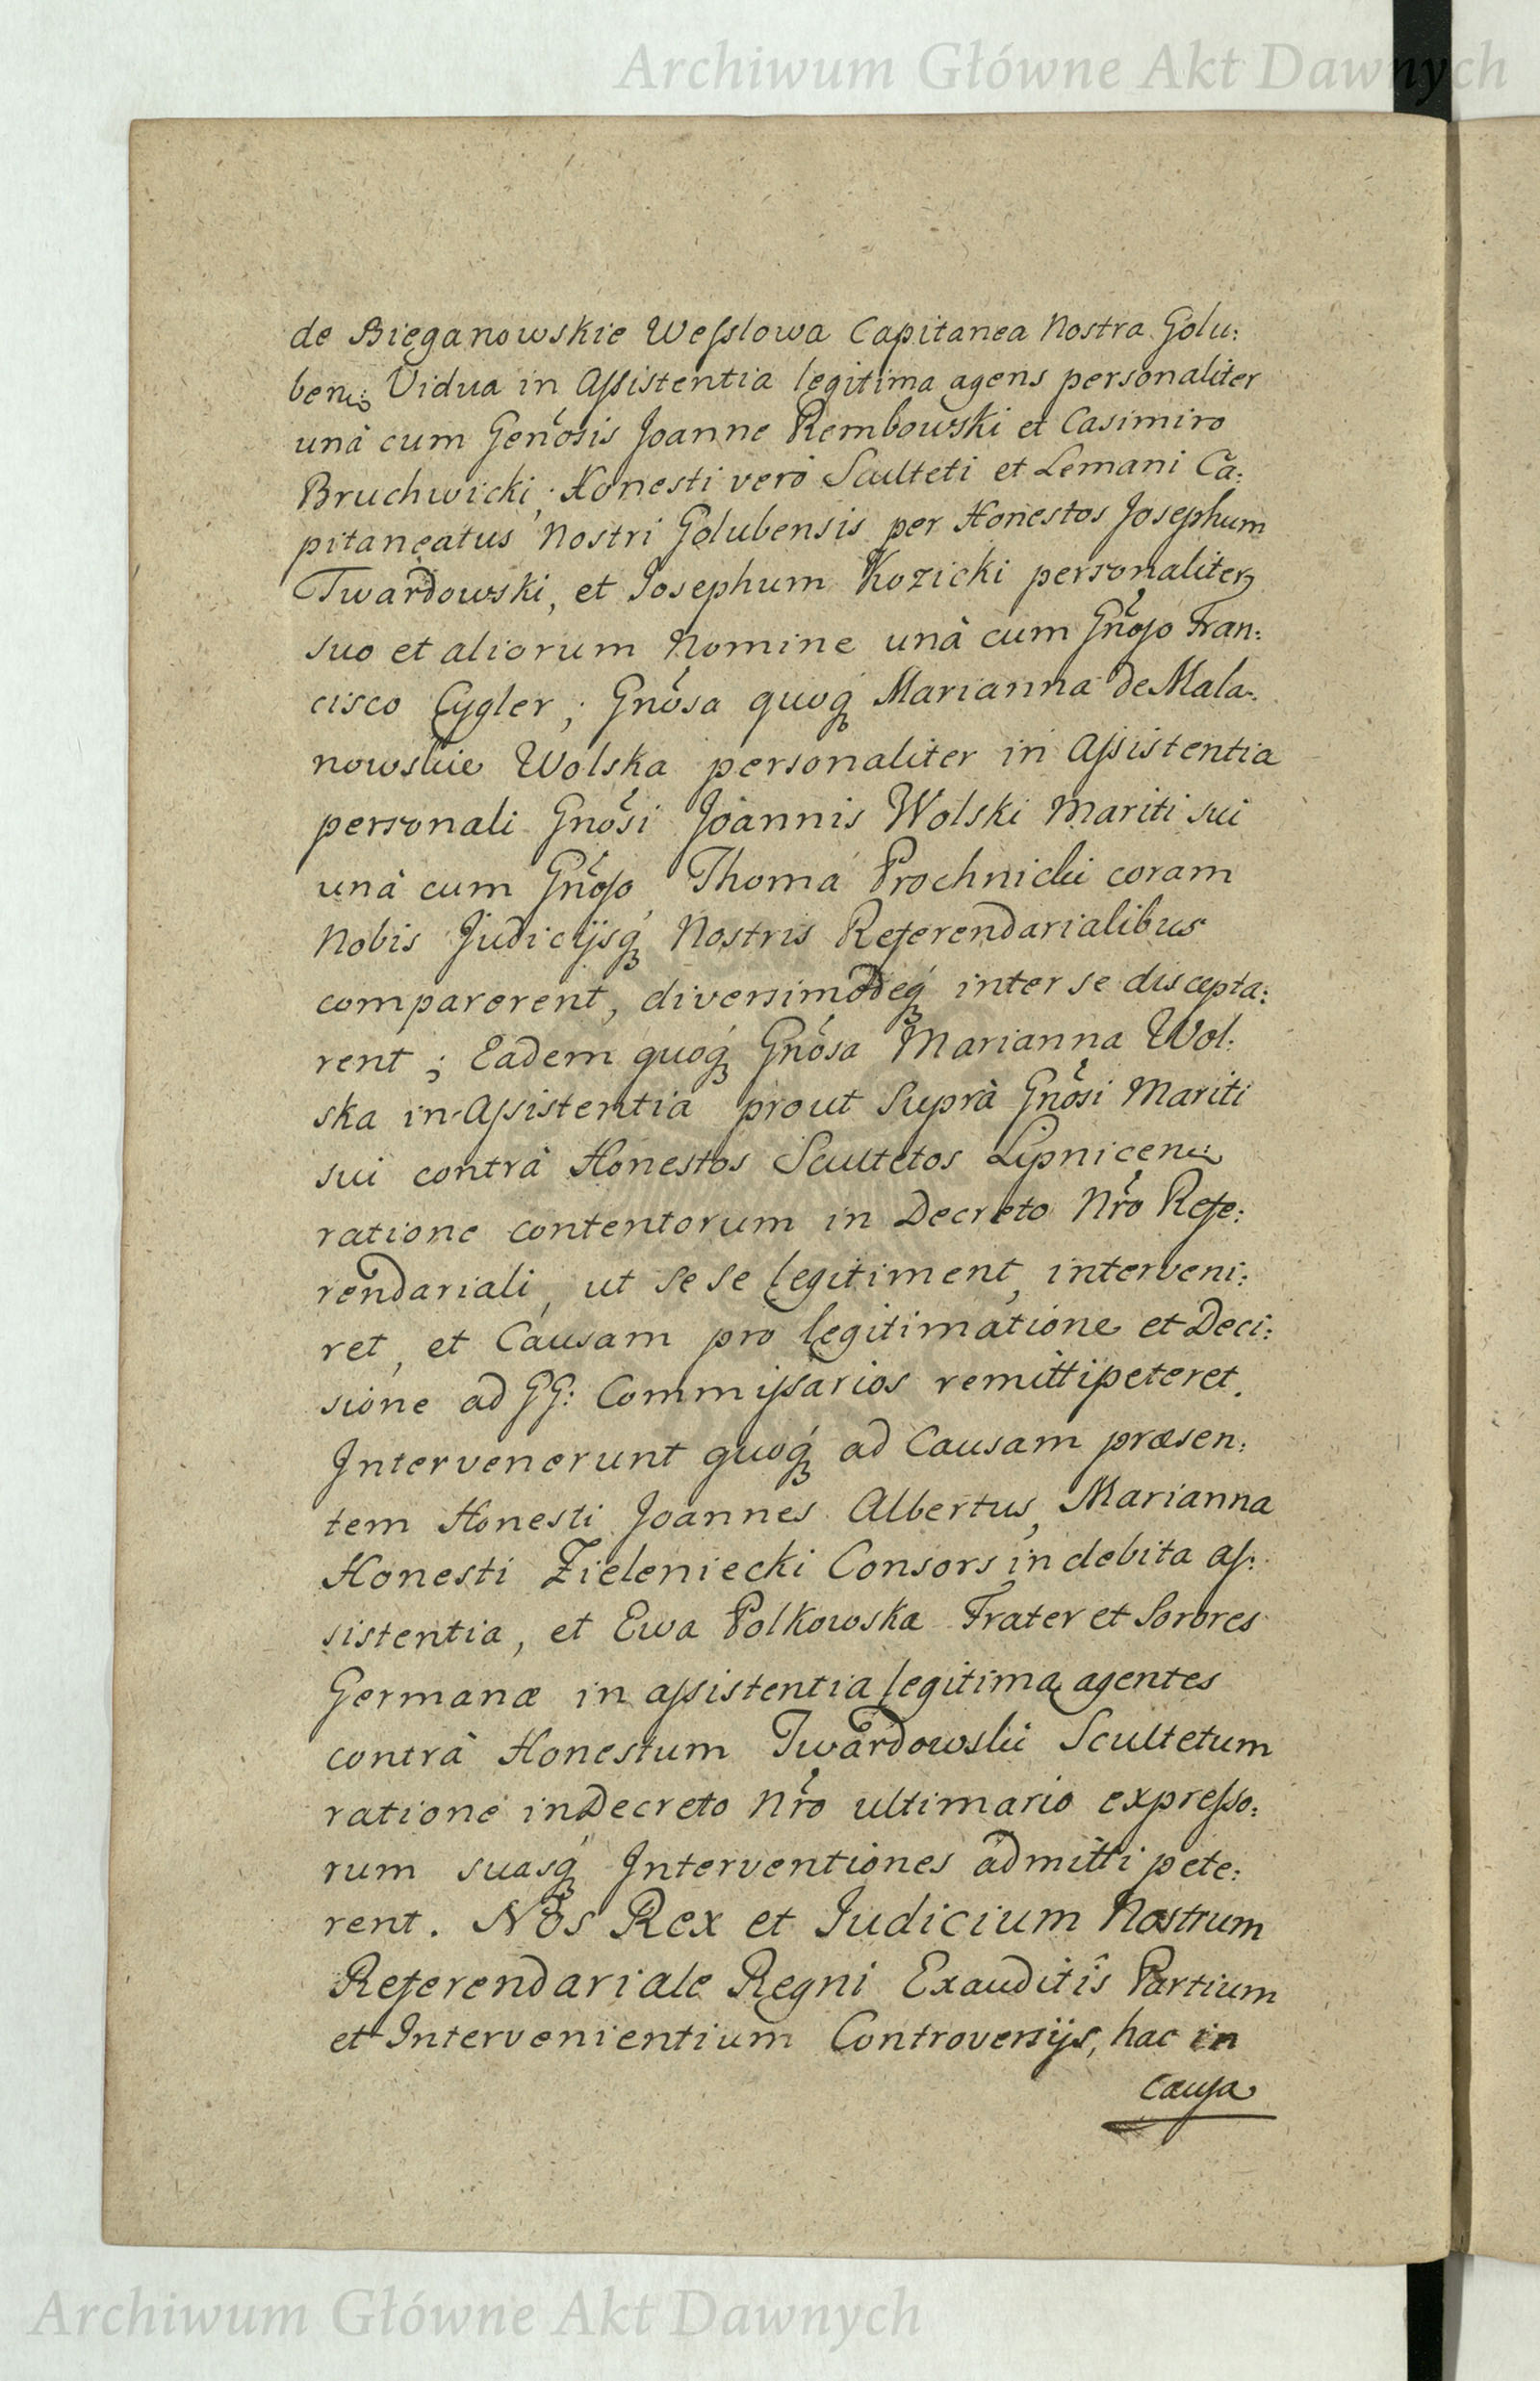 Archiwum Główne Akt Dawnych
de Bieganowskie Wesslowa Capitanea Nostra Golu:
ben: Vidua in Assistentia legitima agens personaliter
unà cum Genosis Joanne Rembowski et Casimiro
Bruchwicki, Honesti verò Sculteti et Lemani Ca:
pitaneatus Nostri Golubensis per Honestos Josephum
Twardowski, et Josephum Kozicki personaliter
suo et aliorum Nomine unà cum Gnoso Fran:
cisco Cygler; Gnosa quoq́ Marianna de Mala:
nowskie Wolska personaliter in Assistentia
personali Gnosi Joannis Wolski Mariti sui
unà cum Gnoso Thoma Prochnicki coram
Nobis Judicijsq́ Nostris Referendarialibus
comparerent, diversimodeq́ inter se discepta:
rent; Eadem quoq́ Gnosa Marianna Wol:
ska in Assistentia prout Suprà Gnosi Mariti
sui contrà Honestos Scultetos Lipnicen:
ratione contentorum in Decreto Nro Refe:
rendariali, ut sese legitiment, interveni:
ret, et Causam pro legitimatione et Deci:
sione ad GG: Commissarios remitti peteret.
Intervenerunt quoq́ ad Causam præsen:
tem Honesti Joannes Albertus, Marianna
Honesti Zieleniecki Consors in debita as:
sistentia, et Ewa Polkowska Frater et Sorores
Germanæ in assistentia legitima agentes
contrà Honestum Twardowski Scultetum
ratione in Decreto Nro ultimario expresso:
rum suasq́ Interventiones admitti pete:
rent. Nos Rex et Judicium Nostrum
Referendariale Regni Exauditis Partium
et Intervenientium Controversijs, hac in
Causa
Archiwum Główne Akt Dawnych